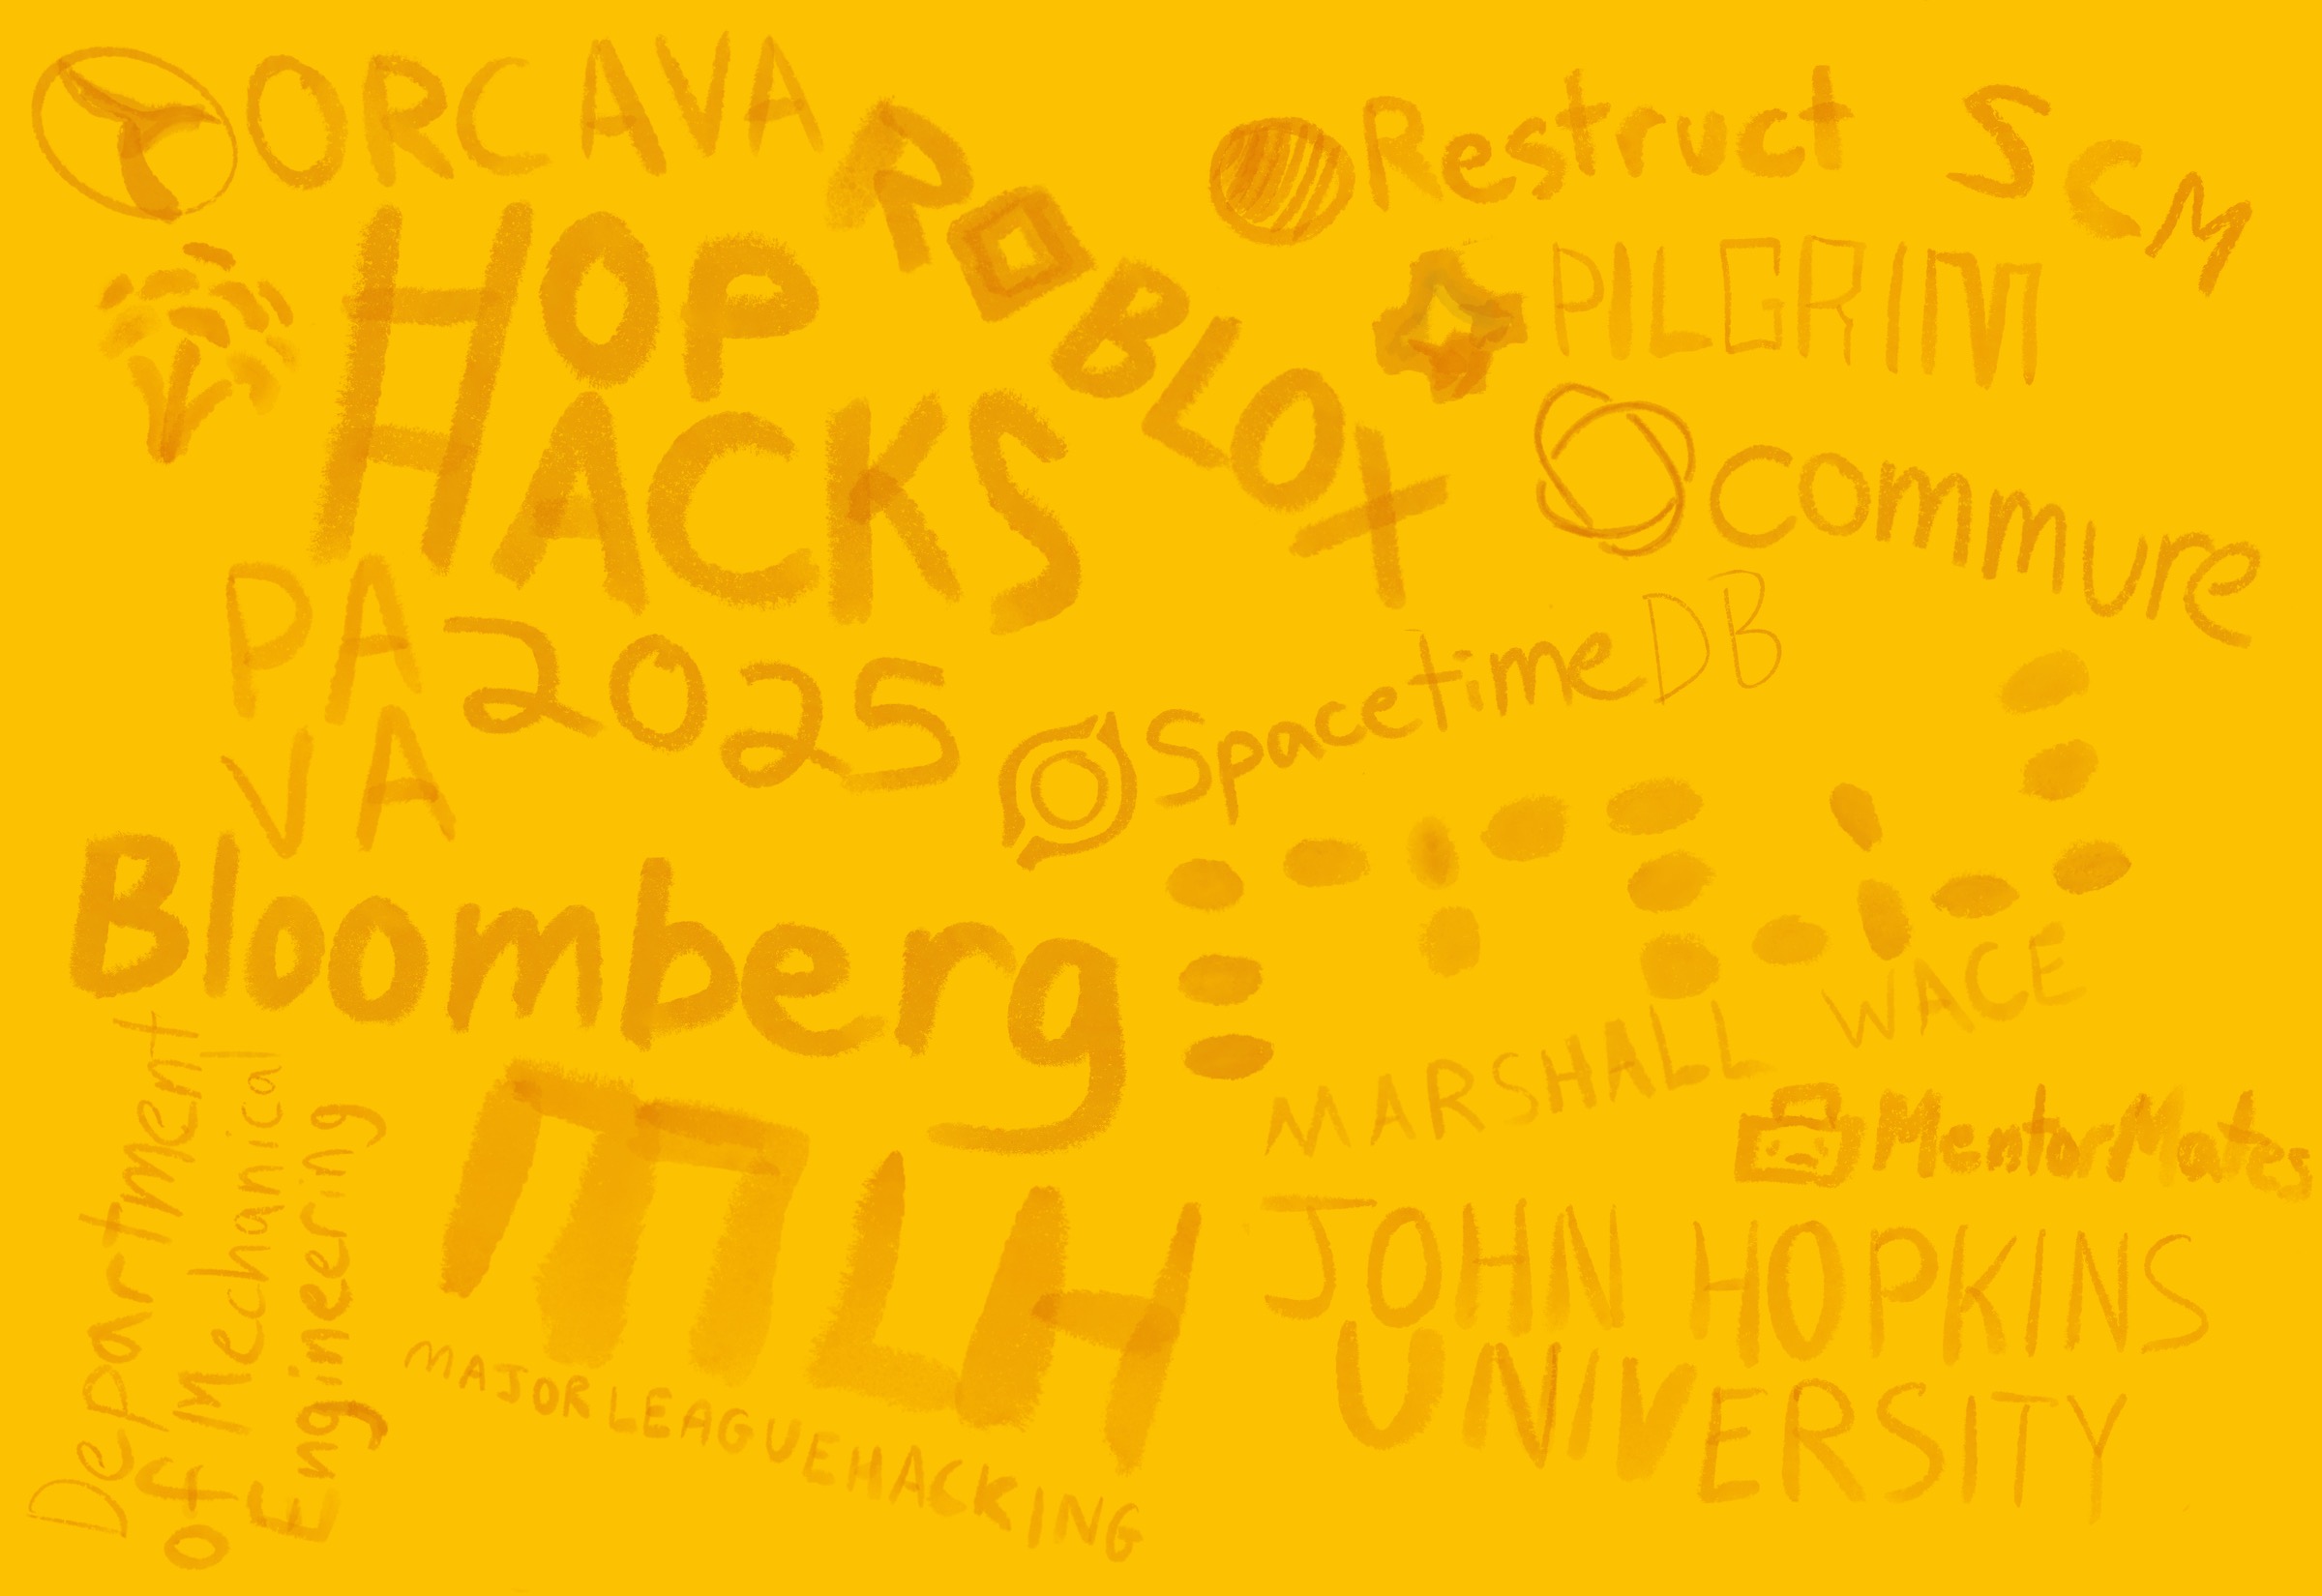 ORCAVA
ROBLOX
Restruct
SCM
HOP
HACKS
PILGRIM
commure
PA
VA
2025
SpacetimeDB
Bloomberg
MARSHALL WACE
MentorMates
Department
of Mechanical
Engineering
MLH
MAJOR LEAGUE HACKING
JOHN HOPKINS
UNIVERSITY